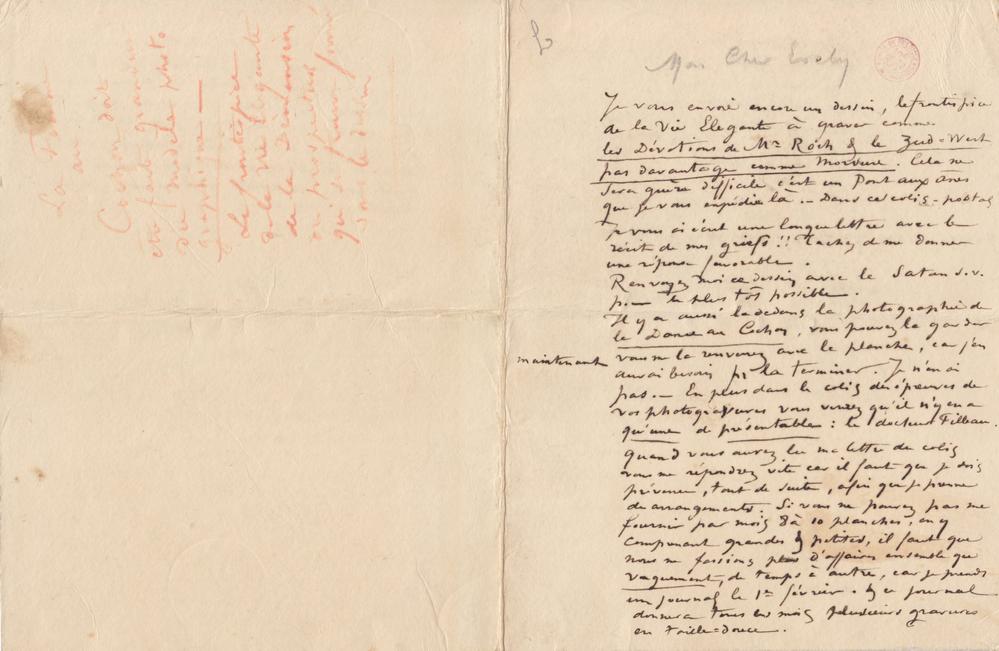 La Femme
au
Cochon doit
être fait grandeur
du modèle photo
graphique —
Le frontispice
de la vie Elégante
de la Dimension
du prospectus
qui se trouve joint
sous le dessin
Mon Cher Evely
Je vous envoie encore un dessin, le frontispice
de la Vie Elegante à graver comme
les Dévotions de Mr Roch & le Zud-West
pas davantage comme morsure. Cela ne
sera guère difficile c'est un Pont aux ânes
que je vous expédie là. — Dans ce colis-postal
je vous ai écrit une longue lettre avec le
récit de mes griefs !! Tachez de me donner
une réponse favorable.
Renvoyez moi ce dessin avec le Satan s.v.
p. — le plus tôt possible.
Il y a aussi là dedans la photographie de
la Dame au Cochon, vous pouvez la garder
maintenant vous me la renverrez avec la planche, car j'en
aurai besoin pr la terminer. Je n'en ai
pas. — En plus dans le colis des épreuves de
vos photogravures vous verrez qu'il n'y en a
qu'une de présentable : le docteur Filleau.
Quand vous aurez lu ma lettre du colis
vous me répondrez vite car il faut que je sois
prévenu, tout de suite, afin que je prenne
des arrangements. Si vous ne pouvez pas me
fournir par mois 8 à 10 planches, en y
comprenant grandes & petites, il faut que
nous ne fassions plus d'affaires ensemble que
vaguement, de temps à autre, car je prends
un journal le 1er février. & ce journal
donnera tous les mois plusieurs gravures
en taille-douce.